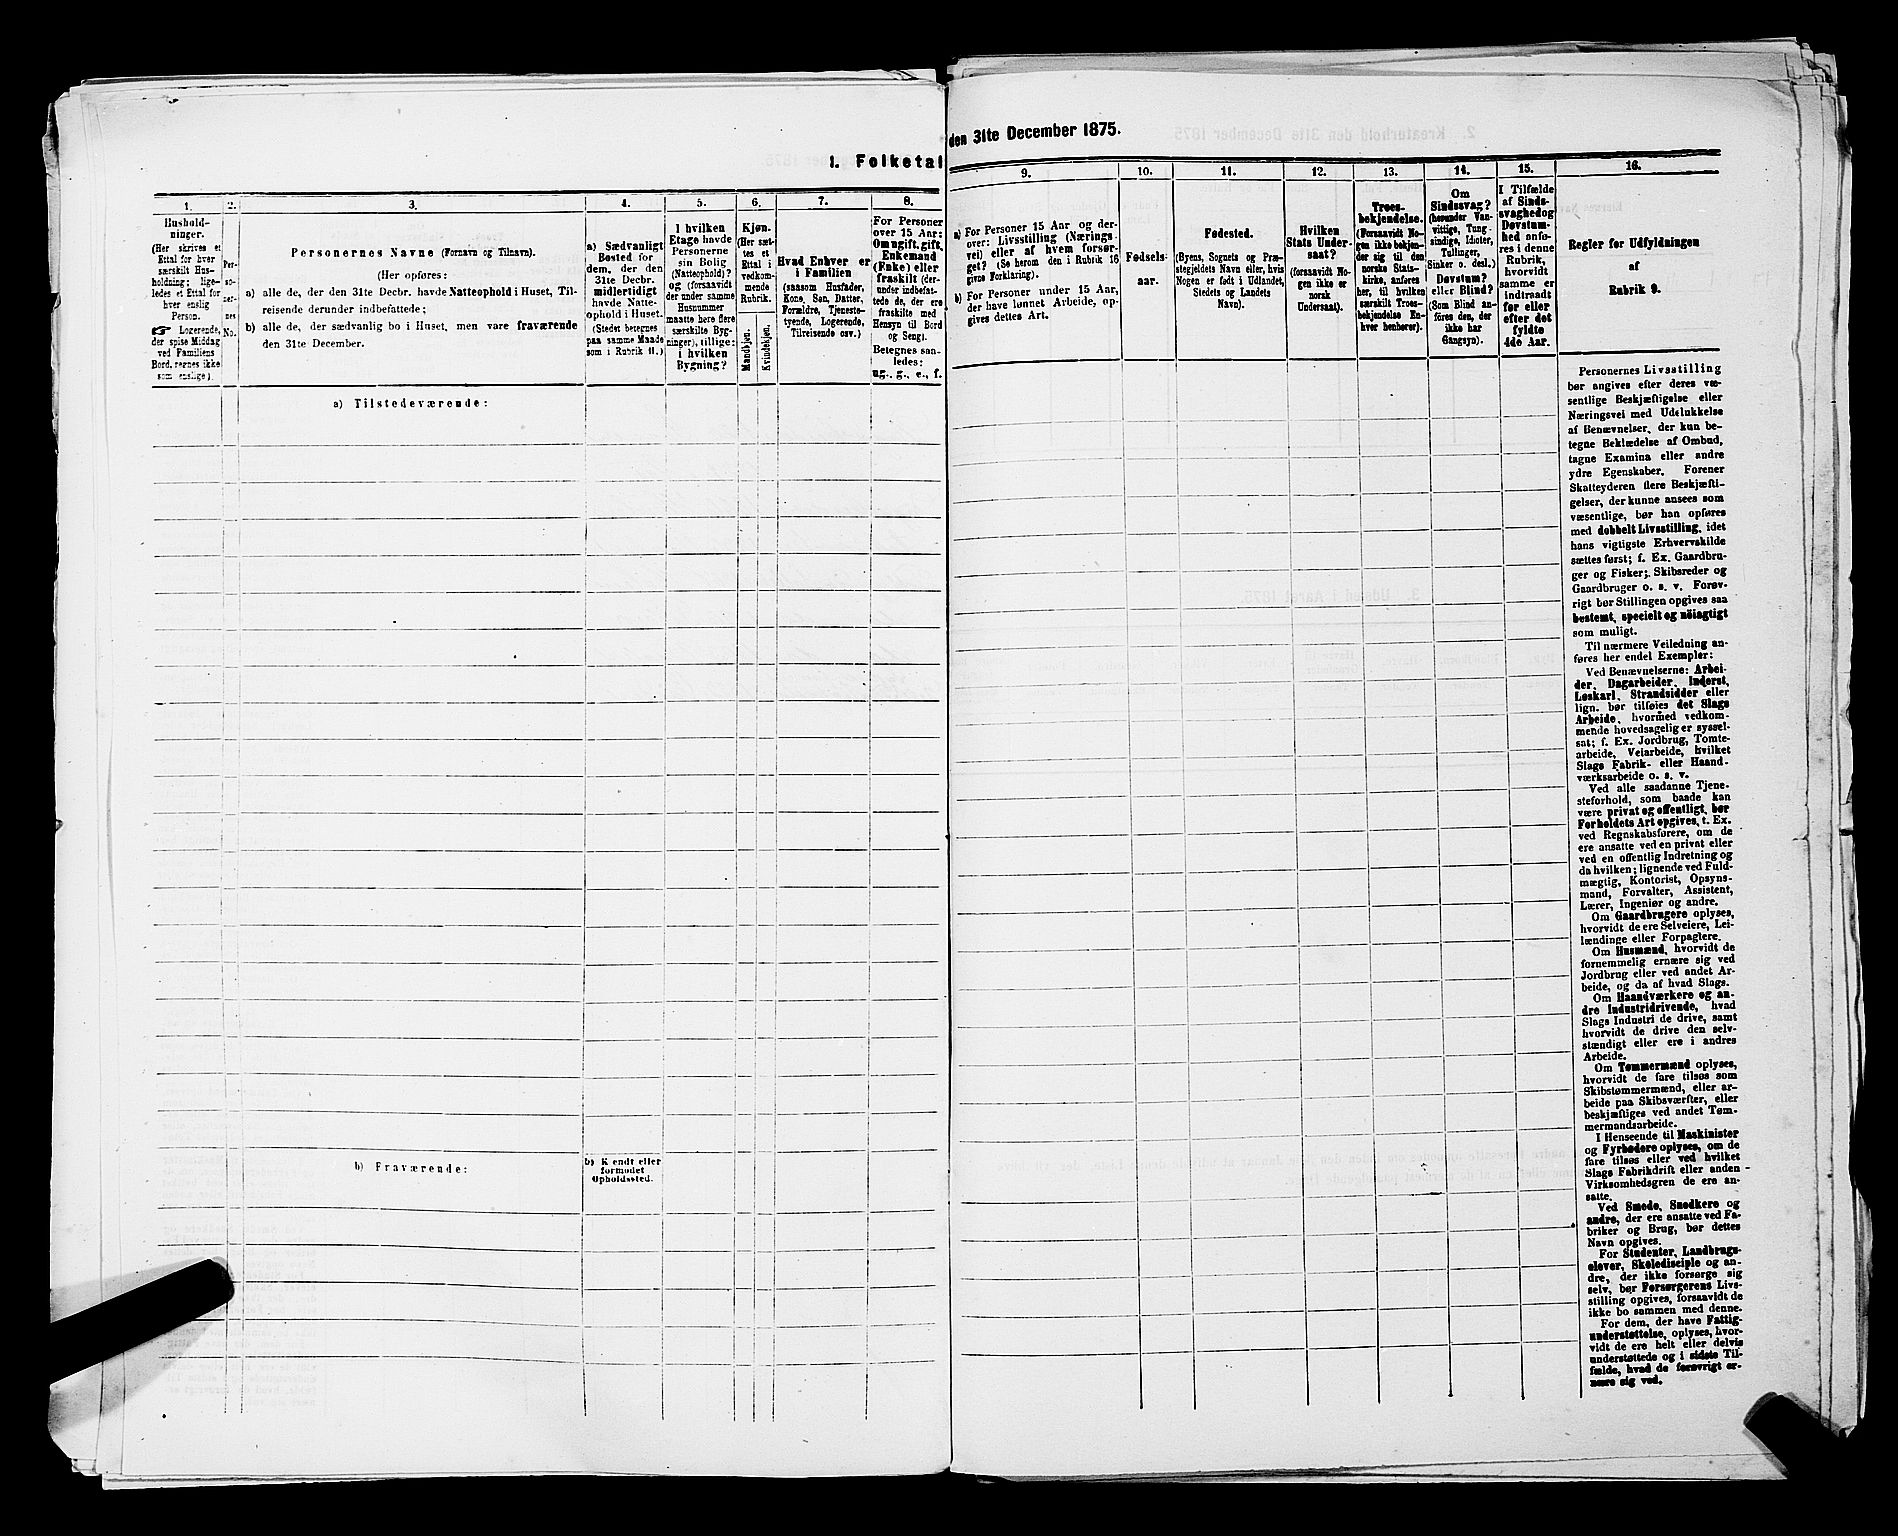 1. Folketal
den 31te December 1875.
1.
Hushold-
ninger.
(Her skrives et
Ettal for hver
særskilt Hus-
holdning; lige-
ledes et Ettal for
hver enslig
Person.
☞ Logerende,
der spise Middag
ved Familiens
Bord, regnes ikke
som enslige).
2.
Per-
so-
ner-
nes
No.
3.
Personernes Navne (Fornavn og Tilnavn).
(Her opføres:
a) alle de, der den 31te Decbr. havde Natteophold i Huset, Til-
reisende derunder indbefattede;
b) alle de, der sædvanlig bo i Huset, men vare fraværende
den 31te December.
4.
a) Sædvanligt
Bosted for
dem, der den
31te Decbr.
midlertidigt
havde Natte-
ophold i Huset.
(Stedet betegnes
paa samme Maade
som i Rubrik 11.)
5.
I hvilken
Etage havde
Personerne
sin Bolig
(Natteophold)?
og (forsaavidt
der under samme
Husnummer
maatte høre flere
særskilte Byg-
ninger), tillige:
i hvilken
Bygning?
6.
Kjøn.
(Her sæt-
tes et
Ettal i
vedkom-
mende
Rubrik.
Mandkjøn.
Kvindekjøn.
7.
Hvad Enhver er
i Familien
(saasom Husfader,
Kone, Søn, Datter,
Forældre, Tjeneste-
tyende, Logerende,
Tilreisende osv.)
8.
For Personer
over 15 Aar:
Om ugift, gift,
Enkemand
(Enke) eller
fraskilt (der-
under indbefat-
tede de, der ere
fraskilte med
Hensyn til Bord
og Seng).
Betegnes saa-
ledes:
ug., g., e., f.
9.
a) For Personer 15 Aar og der-
over: Livsstilling (Nærings-
vei) eller af hvem forsør-
get? (Se herom den i Rubrik 16
givne Forklaring).
b) For Personer under 15 Aar,
der have lønnet Arbeide, op-
gives dettes Art.
10.
Fødsels-
aar.
11.
Fødested.
(Byens, Sognets og Præ-
stegjeldets Navn eller, hvis
Nogen er født i Udlandet,
Stedets og Landets
Navn).
12.
Hvilken
Stats Under-
saat?
(forsaavidt No-
gen ikke er
norsk
Undersaat).
13.
Troes-
bekjendelse.
(Forsaavidt No-
gen ikke bekjen-
der sig til den
norske Stats-
kirke, anføres
her, til hvilken
særskilt Troes-
bekjendelse En-
hver henhører).
14.
Om
Sindssvag?
(herunder Van-
vittige, Tung-
sindige, Idioter,
Tullinger,
Sinker o. desl.)
Døvstum?
eller Blind?
(Som Blind an-
føres den, der
ikke har
Gangsyn).
15.
I Tilfælde
af Sinds-
svaghed og
Døvstum-
hed anfø-
res i denne
Rubrik,
hvorvidt
samme er
indtraadt
før eller
efter det
fyldte
4de Aar.
16.
Regler for Udfyldningen
af
Rubrik 9.
a) Tilstedeværende:
b) Fraværende:
b) Kjendt eller
formodet
Opholdssted.
Personernes Livsstilling
bør angives efter deres væ-
sentlige Beskjæftigelse eller
Næringsvei med Udelukkelse
af Benævnelser, der kun be-
tegne Beklædelse af Ombud,
tagne Examina eller andre
ydre Egenskaber. Forener
Skatteyderen flere Beskjæfti-
gelser, der kunne ansees som
væsentlige, bør han opføres
med dobbelt Livsstilling, idet
hans vigtigste Erhvervskilde
sættes først; f. Ex. Gaardbru-
ger og Fisker; Skibsreder og
Gaardbruger o. s. v. Forøv-
rigt bør Stillingen opgives saa
bestemt, specielt og nöiagtigt
som muligt.
Til nærmere Veiledning an-
føres her endel Exempler:
Ved Benævnelserne: Arbei-
der, Dagarbeider, Inderst,
Løskarl, Strandsidder eller
lign. bør tilføies det Slags
Arbeide, hvormed vedkom-
mende hovedsagelig er syssel-
sat; f. Ex. Jordbrug, Tomte-
arbeide, Veiarbeide, hvilket
Slags Fabrik- eller Haand-
værksarbeide o. s. v.
Ved alle saadanne Tjene-
steforhold, som baade kan
være privat og offentligt, bør
Forholdets Art opgives, t. Ex.
ved Regnskabsførere, om de
ere ansatte ved en privat eller
ved en offentlig Indretning og
da hvilken; lignende ved Fuld-
mægtig, Kontorist, Opsyns-
mand, Forvalter, Assistent,
Lærer, Ingeniør og andre.
Om Gaardbrugere oplyses,
hvorvidt de ere Selveiere, Lei-
lændinge eller Forpagtere.
Om Husmænd, hvorvidt de
fornemmelig ernære sig ved
Jordbrug eller ved andet Ar-
beide, og da af hvad Slags.
Om Haandværkere og an-
dre Industridrivende, hvad
Slags Industri de drive, samt
hvorvidt de drive den selv-
stændigt eller ere i andres
Arbeide.
Om Tømmermænd oplyses,
hvorvidt de fare tilsøs som
Skibstømmermænd, eller ar-
beide paa Skibsværfter, eller
beskjæftiges ved andet Tøm-
mermandsarbeide.
I Henseende til Maskinister
og Fyrbødere oplyses, om de
fare tilsøs eller ved hvilket
Slags Fabrikdrift eller anden
Virksomhedsgren de ere an-
satte.
Ved Smede, Snedkere og
andre, der ere ansatte ved Fa-
briker og Brug, bør dettes
Navn opgives.
For Studenter, Landbrugs-
elever, Skoledisciple og an-
dre, der ikke forsørge sig
selv, bør Forsørgerens Livs-
stilling opgives, forsaavidt de
ikke bo sammen med denne.
For dem, der have Fattig-
understøttelse, oplyses, hvor-
vidt de ere helt eller delvis
understøttede og i sidste Til-
fælde, hvad de forøvrigt er-
nære sig ved.